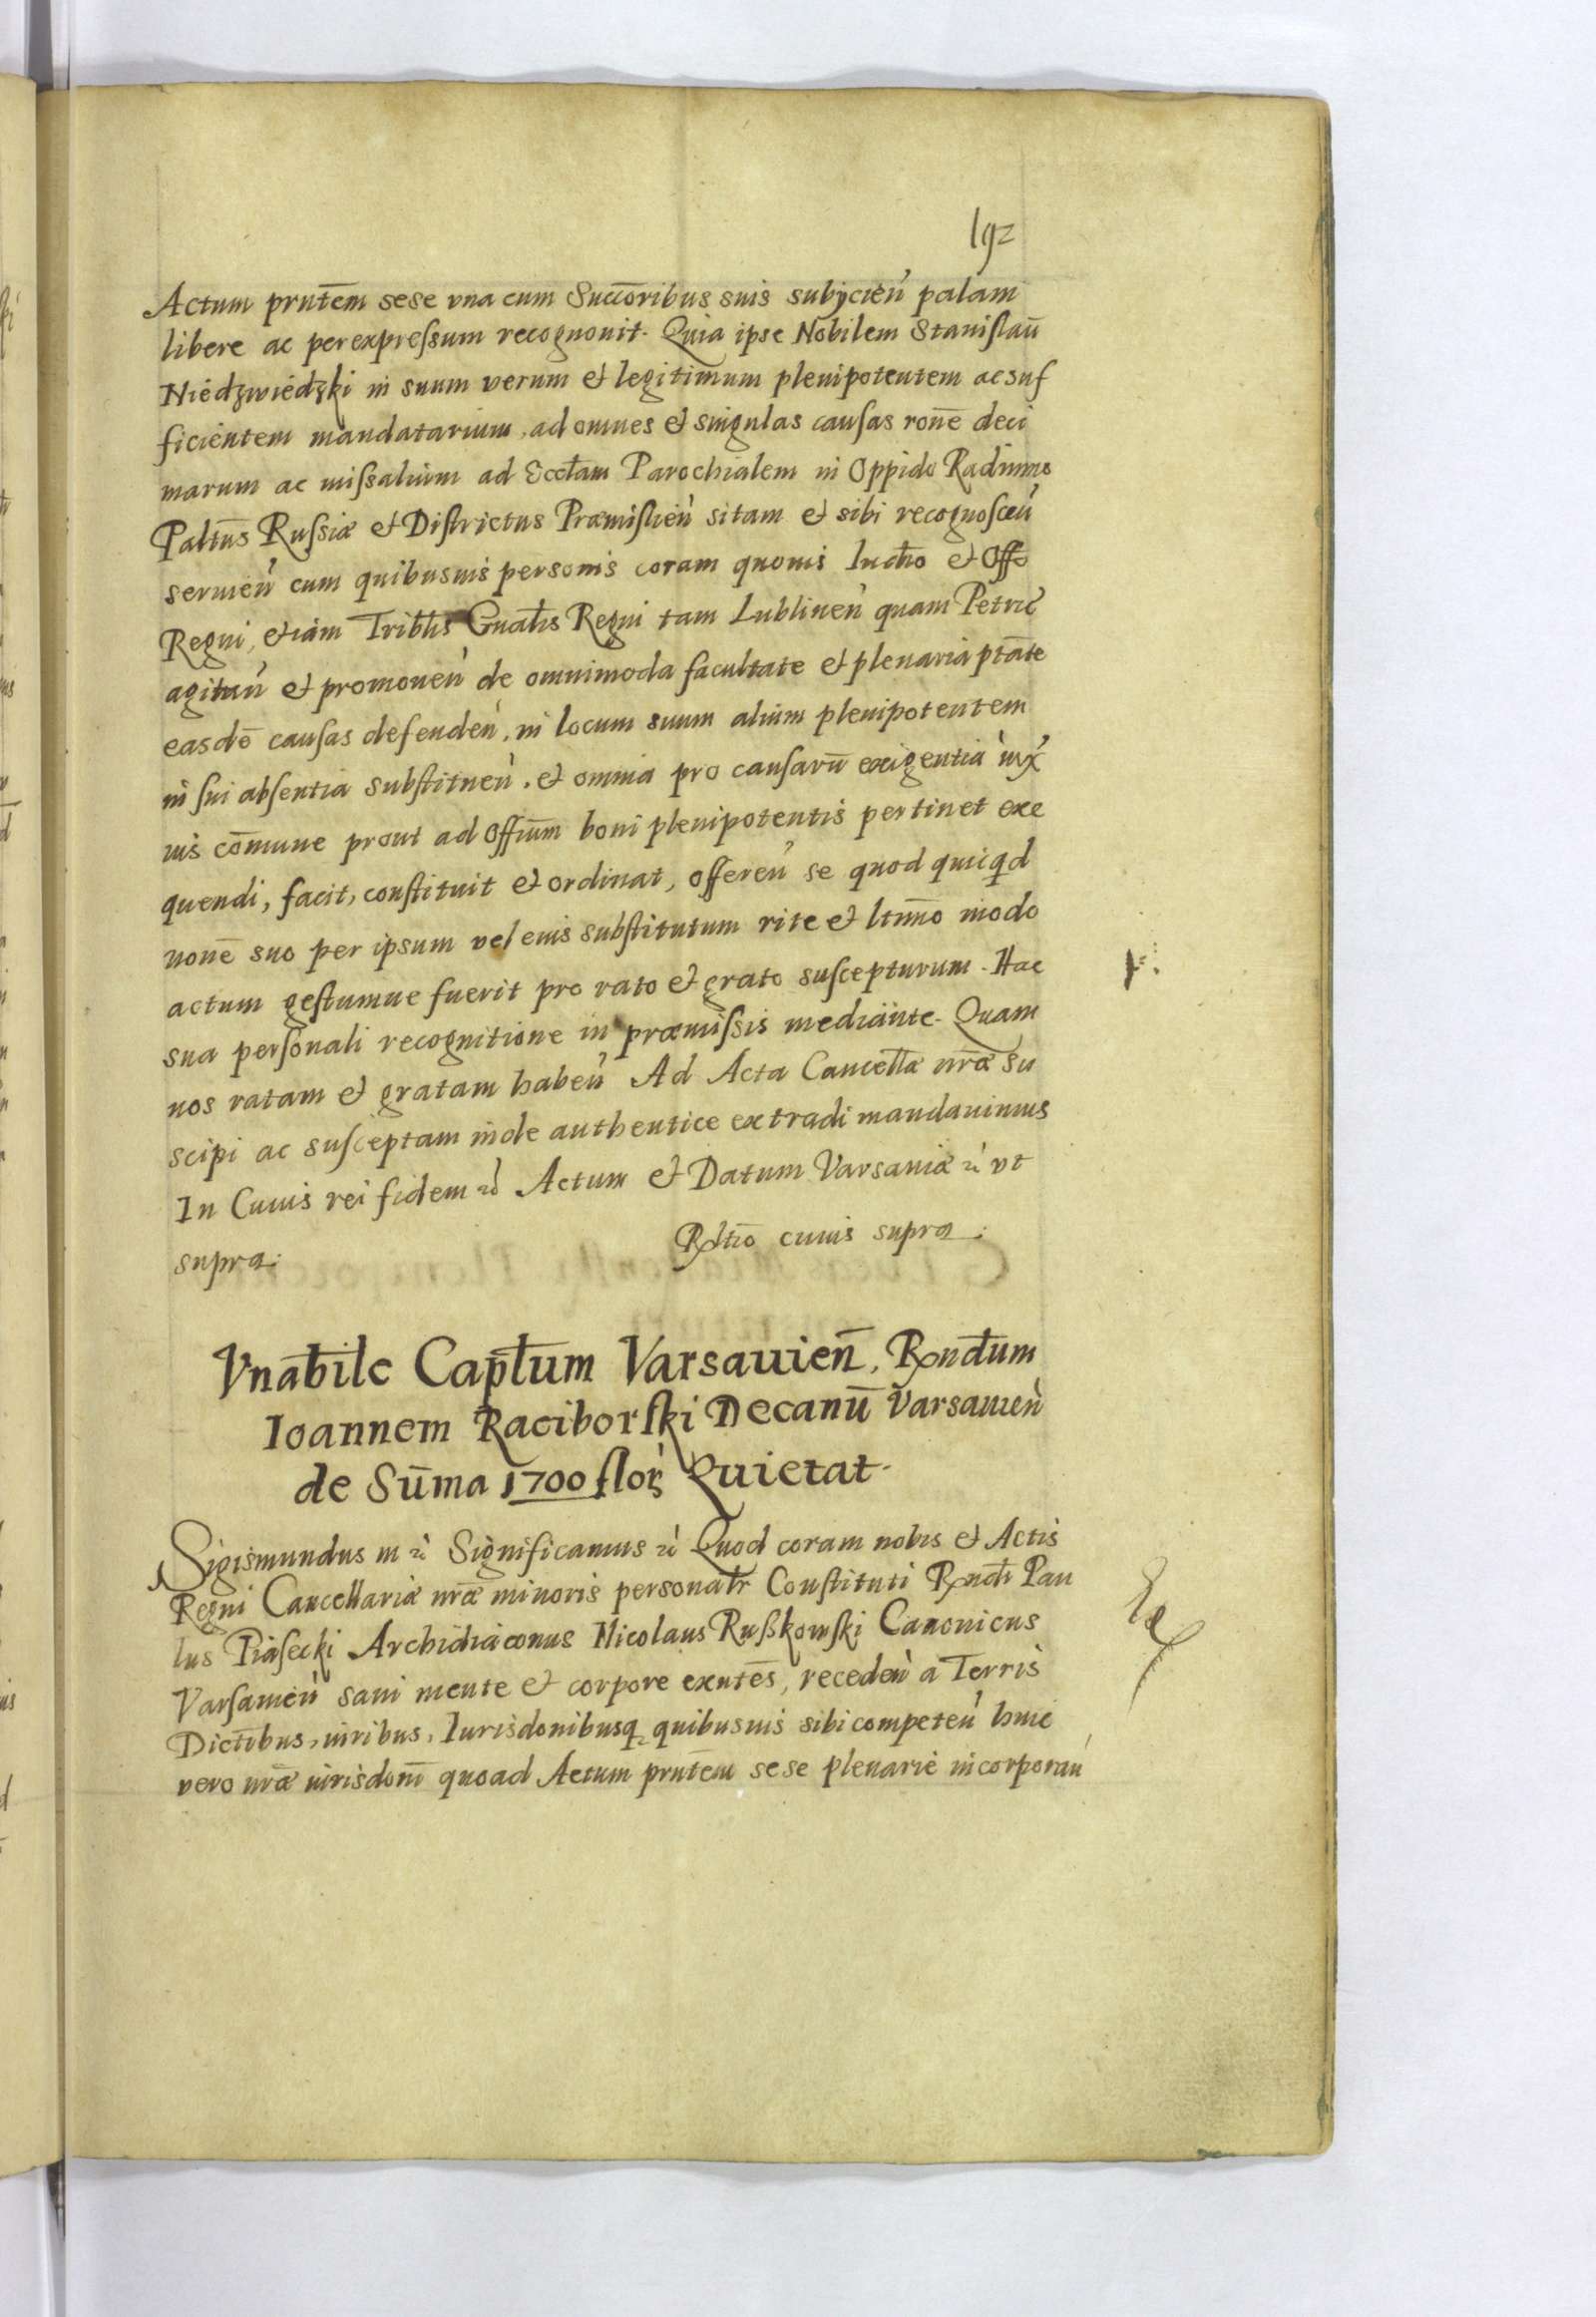 192
Actum prntēm sese vna cum Succōribus suis subijcień palam
libere ac perexpressum recognouit. Quia ipse Nobilem Stanislaū
Niedzwiedzki in suum verum et legitimum plenipotentem ac suf
ficientem mandatarium, ad omnes et singulas causas ronē deci
marum ac missalium ad Ecctam Parochialem in Oppido Radimno
Paltūs Russiæ et Districtus Præmislień sitam et sibi recognosceń
seruień cum quibusuis personis coram quouis Iudtio et Offo
Regni, etiam Tribtis Gnatis Regni tam Lublineń quam Petric
agitań et promoueń de omnimoda facultate et plenaria ptāte
easdē causas defendeń, in locum suum alium plenipotentem
in sui absentia substitueń, et omnia pro causarū exigentia iux
ius cōmune prout ad Offiūm boni plenipotentis pertinet exe
quendi, facit, constituit et ordinat, offereń se quod quicqd
nonē suo per ipsum vel eius substitutum rite et ltīmo modo
actum gestumue fuerit pro rato et grato suscepturum. Hac
sua personali recognitione in præmissis mediante. Quam
nos ratam et gratam habeń Ad Acta Cancellæ nrǣ su
scipi ac susceptam inde authentice extradi mandauimus
In Cuius rei fidem etc̀ Actum et Datum Varsauiæ etc̀ vt
supra. Rltio cuius supra.
Vnabile Captum Varsauień, Rndum
Ioannem Raciborski Decanū Varsauień
de Sūma 1700 flor Quietat.
Sigismundus III etc̀ Significamus etc̀ Quod coram nobis et Actis
Regni Cancellariæ nrǣ minoris personatr Constituti Rndi Pau
lus Piasecki Archidiaconus Nicolaus Ruszkowski Canonicus
Varsauień sani mente et corpore exntēs, recedeń a Terris
Dictibus, iuribus, Iurisdonibusq quibusuis sibi competeń huic
vero nrǣ iurisdonī quoad Actum prntēm sese plenarie incorporań